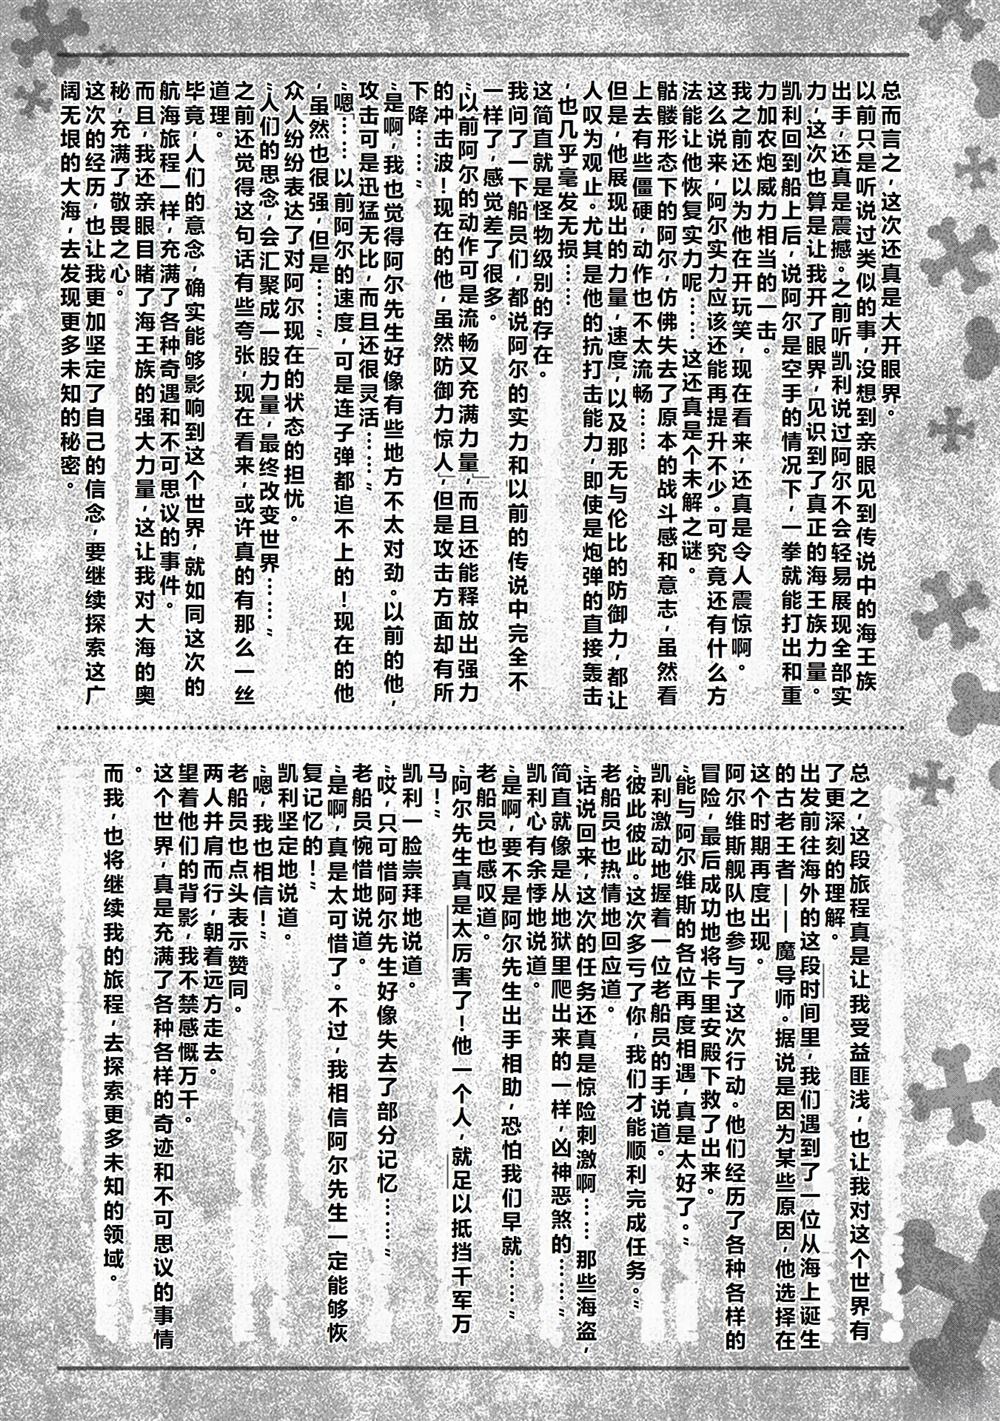 总而言之，这次还真是大开眼界。
以前只是听说过类似的事，没想到亲眼见到传说中的海王族
出手，还真是震撼。之前听凯利说过阿尔不会轻易展现全部实
力，这次也算是让我开了眼界，见识到了真正的海王族力量。
凯利回到船上后，说阿尔是空手的情况下，一拳就能打出和重
力加农炮威力相当的一击。
我之前还以为他在开玩笑，现在看来，还真是令人震惊啊。
这么说来，阿尔实力应该还能再提升不少。可究竟还有什么方
法能让他恢复实力呢……这还真是个未解之谜。
骷髅形态下的阿尔，仿佛失去了原本的战斗感和意志，虽然看
上去有些僵硬，动作也不太流畅……
但是，他展现出的力量，速度，以及那无与伦比的防御力，都让
人叹为观止。尤其是他的抗打击能力，即使是炮弹的直接轰击
，也几乎毫发无损……
这简直就是怪物级别的存在。
我问了一下船员们，都说阿尔的实力和以前的传说中完全不
一样了，感觉差了很多。
“以前阿尔的动作可是流畅又充满力量，而且还能释放出强力
的冲击波！现在的他，虽然防御力惊人，但是攻击方面却有所
下降……”
“是啊，我也觉得阿尔先生好像有些地方不太对劲。以前的他，
攻击可是迅猛无比，而且还很灵活……”
“嗯……以前阿尔的速度，可是连子弹都追不上的！现在的他
，虽然也很强，但是……”
众人纷纷表达了对阿尔现在的状态的担忧。
“人们的思念，会汇聚成一股力量，最终改变世界……”
之前还觉得这句话有些夸张，现在看来，或许真的有那么一丝
道理。
毕竟，人们的意念，确实能够影响到这个世界，就如同这次的
航海旅程一样，充满了各种奇遇和不可思议的事件。
而且，我还亲眼目睹了海王族的强大力量，这让我对大海的奥
秘，充满了敬畏之心。
这次的经历，也让我更加坚定了自己的信念，要继续探索这广
阔无垠的大海，去发现更多未知的秘密。
总之，这段旅程真是让我受益匪浅，也让我对这个世界有
了更深刻的理解。
出发前往海外的这段时间里，我们遇到了一位从海上诞生
的古老王者——魔导师。据说是因为某些原因，他选择在
这个时期再度出现。
阿尔维斯舰队也参与了这次行动。他们经历了各种各样的
冒险，最后成功地将卡里安殿下救了出来。
“能与阿尔维斯的各位再度相遇，真是太好了。”
凯利激动地握着一位老船员的手说道。
“彼此彼此。这次多亏了你，我们才能顺利完成任务。”
老船员也热情地回应道。
“话说回来，这次的任务还真是惊险刺激啊……那些海盗，
简直就像是从地狱里爬出来的一样，凶神恶煞的……”
凯利心有余悸地说道。
“是啊，要不是阿尔先生出手相助，恐怕我们早就……”
老船员也感叹道。
“阿尔先生真是太厉害了！他一个人，就足以抵挡千军万
马！”
凯利一脸崇拜地说道。
“哎，只可惜阿尔先生好像失去了部分记忆……”
老船员惋惜地说道。
“是啊，真是太可惜了。不过，我相信阿尔先生一定能够恢
复记忆的！”
凯利坚定地说道。
“嗯，我也相信！”
老船员也点头表示赞同。
两人并肩而行，朝着远方走去。
望着他们的背影，我不禁感慨万千。
这个世界，真是充满了各种各样的奇迹和不可思议的事情
。
而我，也将继续我的旅程，去探索更多未知的领域。